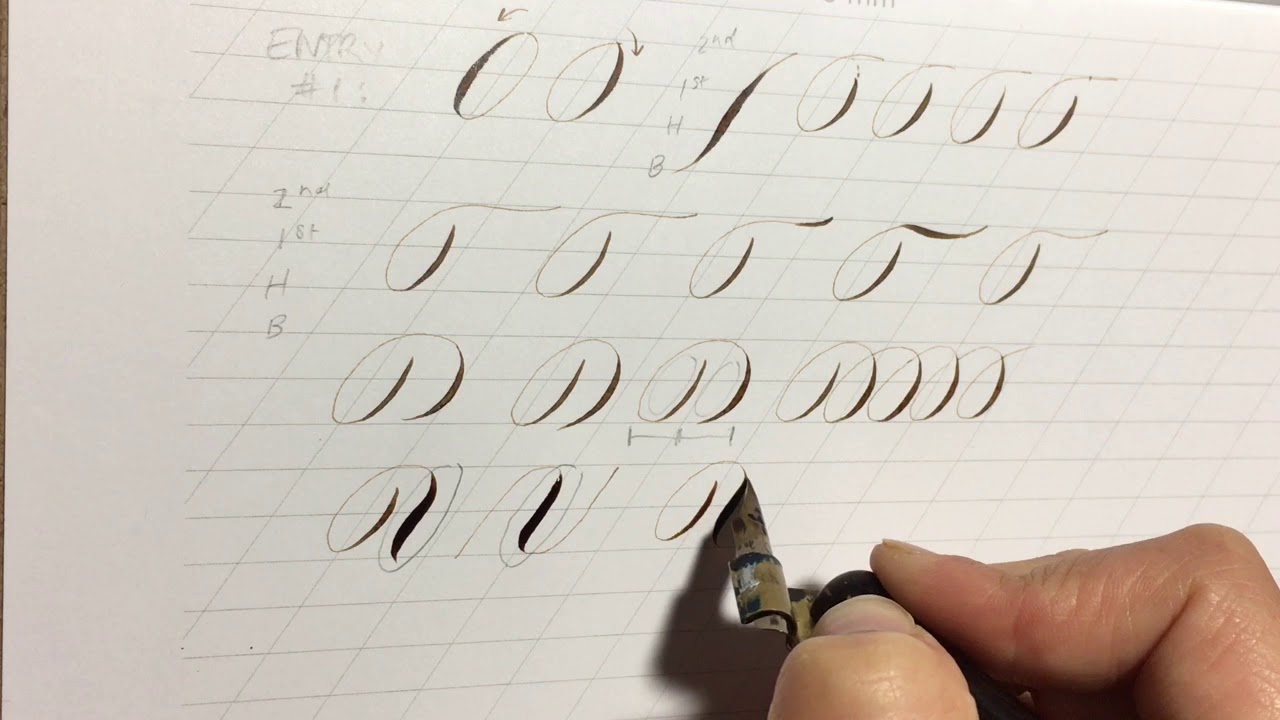 mm
ENTRY
#1:
2nd
1st
H
B
2nd
1st
H
B